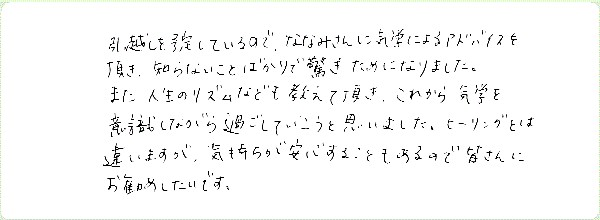 引越しを予定しているので、ななみさんに気学によるアドバイスを
頂き、知らないことばかりで驚きためになりました。
また人生のリズムなども教えて頂き、これから気学を
意識しながら過ごしていこうと思いました。ヒーリングとは
違いますが、気持ちが安心することもあるので皆さんに
お勧めしたいです。